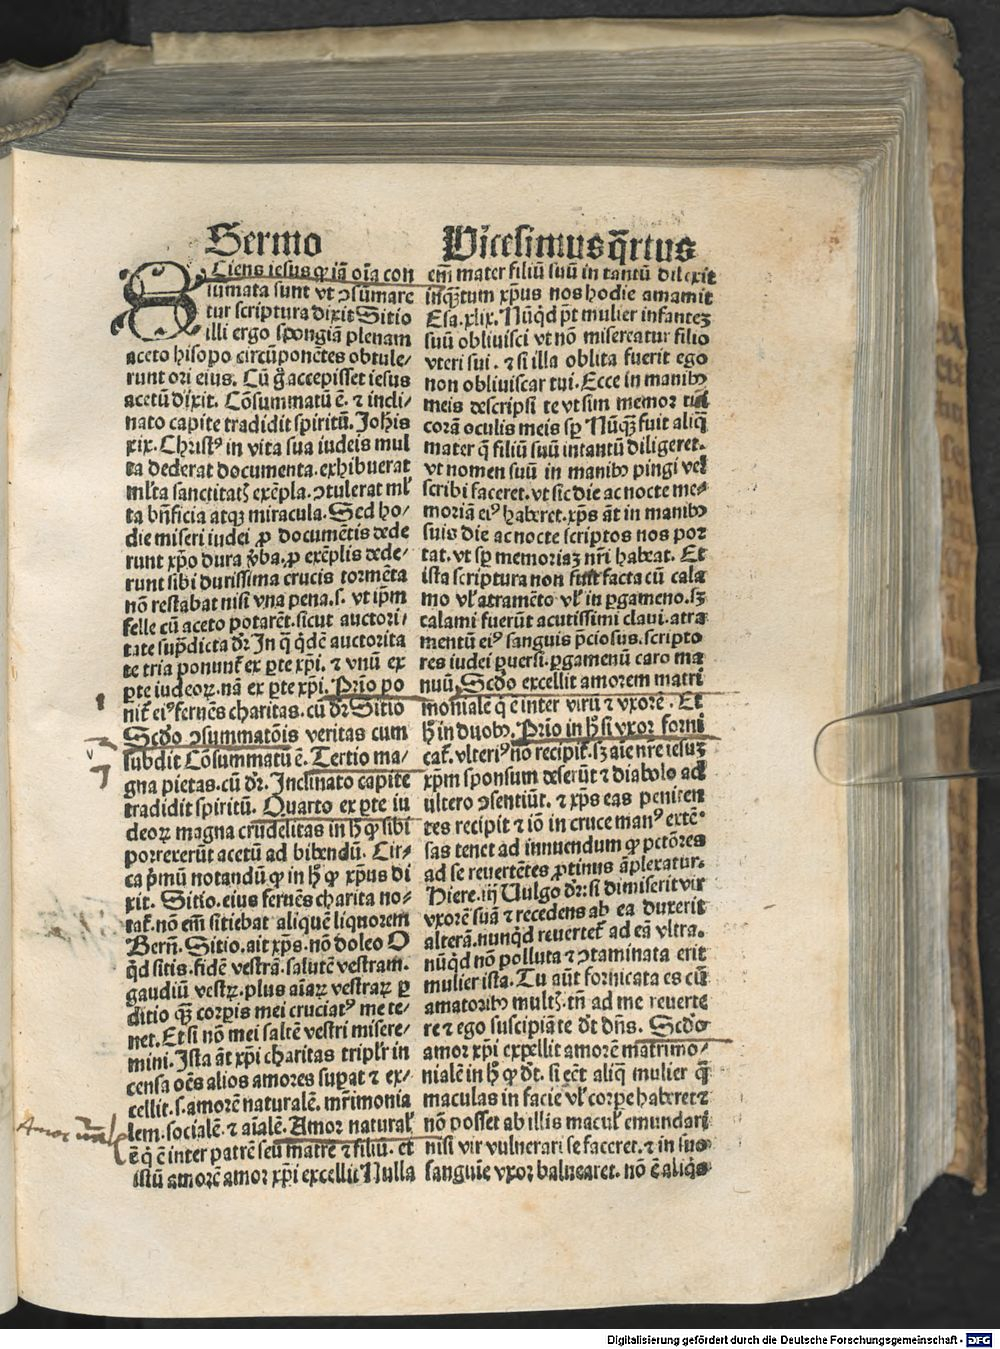 Sermo
Vicesimusq̄rtus
SCiens iesus ꝙ iā oīa con
sumata sunt vt ꝯsūmare
tur scriptura dixit Sitio
illi ergo spongiā plenam
aceto hisopo circūponētes obtule⸗
runt ori eius. Cū g̊ accepisset iesus
acetū dixit. Cōsummatū ē. ⁊ incli⸗
nato capite tradidit spiritū. Joh̄is
xix. Christꝰ in vita sua iudeis mul
ta dederat documenta. exhibuerat
ml̓ta sanctitatꝭ exēpla. ꝯtulerat ml̓
ta bn̄ficia atqꝫ miracula. Sed ho⸗
die miseri iudei ꝓ documētis dede
runt xp̄o dura v̓ba. ꝓ exēplis dede⸗
runt sibi durissima crucis tormēta
nō restabat nisi vna pena. s. vt ip̄m
felle cū aceto potarēt. sicut auctori⸗
tate sup̄dicta dr̄ In q̄ qͥdē auctorita
te tria ponunt̄ ex ꝑte xp̄i. ⁊ vnū ex
ꝑte iudeoꝝ. nā ex ꝑte xp̄i. Prīo po
nit̄ eiꝰ feruēs charitas. cū dr̄ Sitio
Scd̓o ꝯsummatōis veritas cum
subdit Cōsummatū ē. Tertio ma⸗
gna pietas. cū dr̄. Inclinato capite
tradidit spiritū. Quarto ex ꝑte iu
deoꝝ magna crudelitas in hͦ ꝙ sibi
porrexerūt acetū ad bibendū. Cir⸗
ca pͥmū notandū ꝙ in hͦ ꝙ xp̄us di
xit. Sitio. eius feruēs charita no⸗
tat̄. nō em̄ sitiebat aliquē liquorem
Bern̄. Sitio. ait xp̄s. nō doleo O
qͥd sitis. fidē vestrā. salutē vestram.
gaudiū vestꝝ. plus aīaꝝ vestraꝝ ꝑ
ditio qꝫ corꝑis mei cruciatꝰ me te⸗
net. Et si nō mei saltē vestri misere⸗
mini. Ista āt xp̄i charitas tripl̓r in
censa oēs alios amores suꝑat ⁊ ex⸗
cellit. s. amorē naturalē. mr̄imonia
lem. socialē. ⁊ aīalē. Amor natural̓
ē q̇ ē inter patrē seu matrē ⁊ filiū. et
istū amorē amor xp̄i excellit Nulla
em̄ mater filiū suū in tantū dilexit
inqꝫtum xp̄us nos hodie amauit
Esa. xlix. Nūqͥd pōt mulier infantez
suū obliuisci vt nō misereatur filio
vteri sui. ⁊ si illa oblita fuerit ego
non obliuiscar tui. Ecce in manibꝰ
meis descripsi te vt sim memor tui
corā oculis meis sꝑ Nūqꝫ fuit aliq̄
mater q̄ filiū suū intantū diligeret.
vt nomen suū in manibꝰ pingi vel
scribi faceret. vt sic die ac nocte me⸗
moriā eiꝰ haberet. xp̄s āt in manibꝰ
suis die ac nocte scriptos nos por
tat. vt sꝑ memoriaꝫ nr̄i habeat. Et
ista scriptura non fuit facta cū cala
mo vl̓ atramēto vl̓ in ꝑgameno. sꝫ
calami fuerūt acutissimi claui. atra
mentū eiꝰ sanguis p̄ciosus. scripto
res iudei ꝑuersi. ꝑgamenū caro ma
nuū. Scd̓o excellit amorem matri
moniale q̇ ē inter virū ⁊ vxorē. Et
hͦ in duobꝰ. Prīo in hͦ si vxor forni
cat̄. vlteriꝰ nō recipit̄. sꝫ aīe nr̄e iesuꝫ
xp̄m sponsum deserūt ⁊ diabolo ad
ultero ꝯsentiūt. ⁊ xp̄s eas peniten
tes recipit ⁊ iō in cruce manꝰ extē⸗
sas tenet ad innuendum ꝙ pctōres
ad se reuertētes ꝓtinus āplexatur.
Hiere. iij Uulgo dr̄: si dimiserit vir
vxorē suā ⁊ recedens ab ea duxerit
alterā. nunqͥd reuertet̄ ad eā vltra.
nūqͥd nō polluta ⁊ ꝯtaminata erit
mulier ista. Tu aūt fornicata es cū
amatoribꝰ multꝭ. tn̄ ad me reuerte
re ⁊ ego suscipiā te dt̄ dn̄s. Scd̓o
amor xp̄i expellit amorē matrimo⸗
nialē in hͦ ꝙ dt̄. si eēt aliq̄ mulier q̄
maculas in facie vl̓ corꝑe haberet ⁊
nō posset ab illis macul̓ emundari
nisi vir vulnerari se faceret. ⁊ in suo
sanguīe vxorē balnearet. nō ē aliqͥs
Digitalisierung gefördert durch die Deutsche Forschungsgemeinschaft - DFG